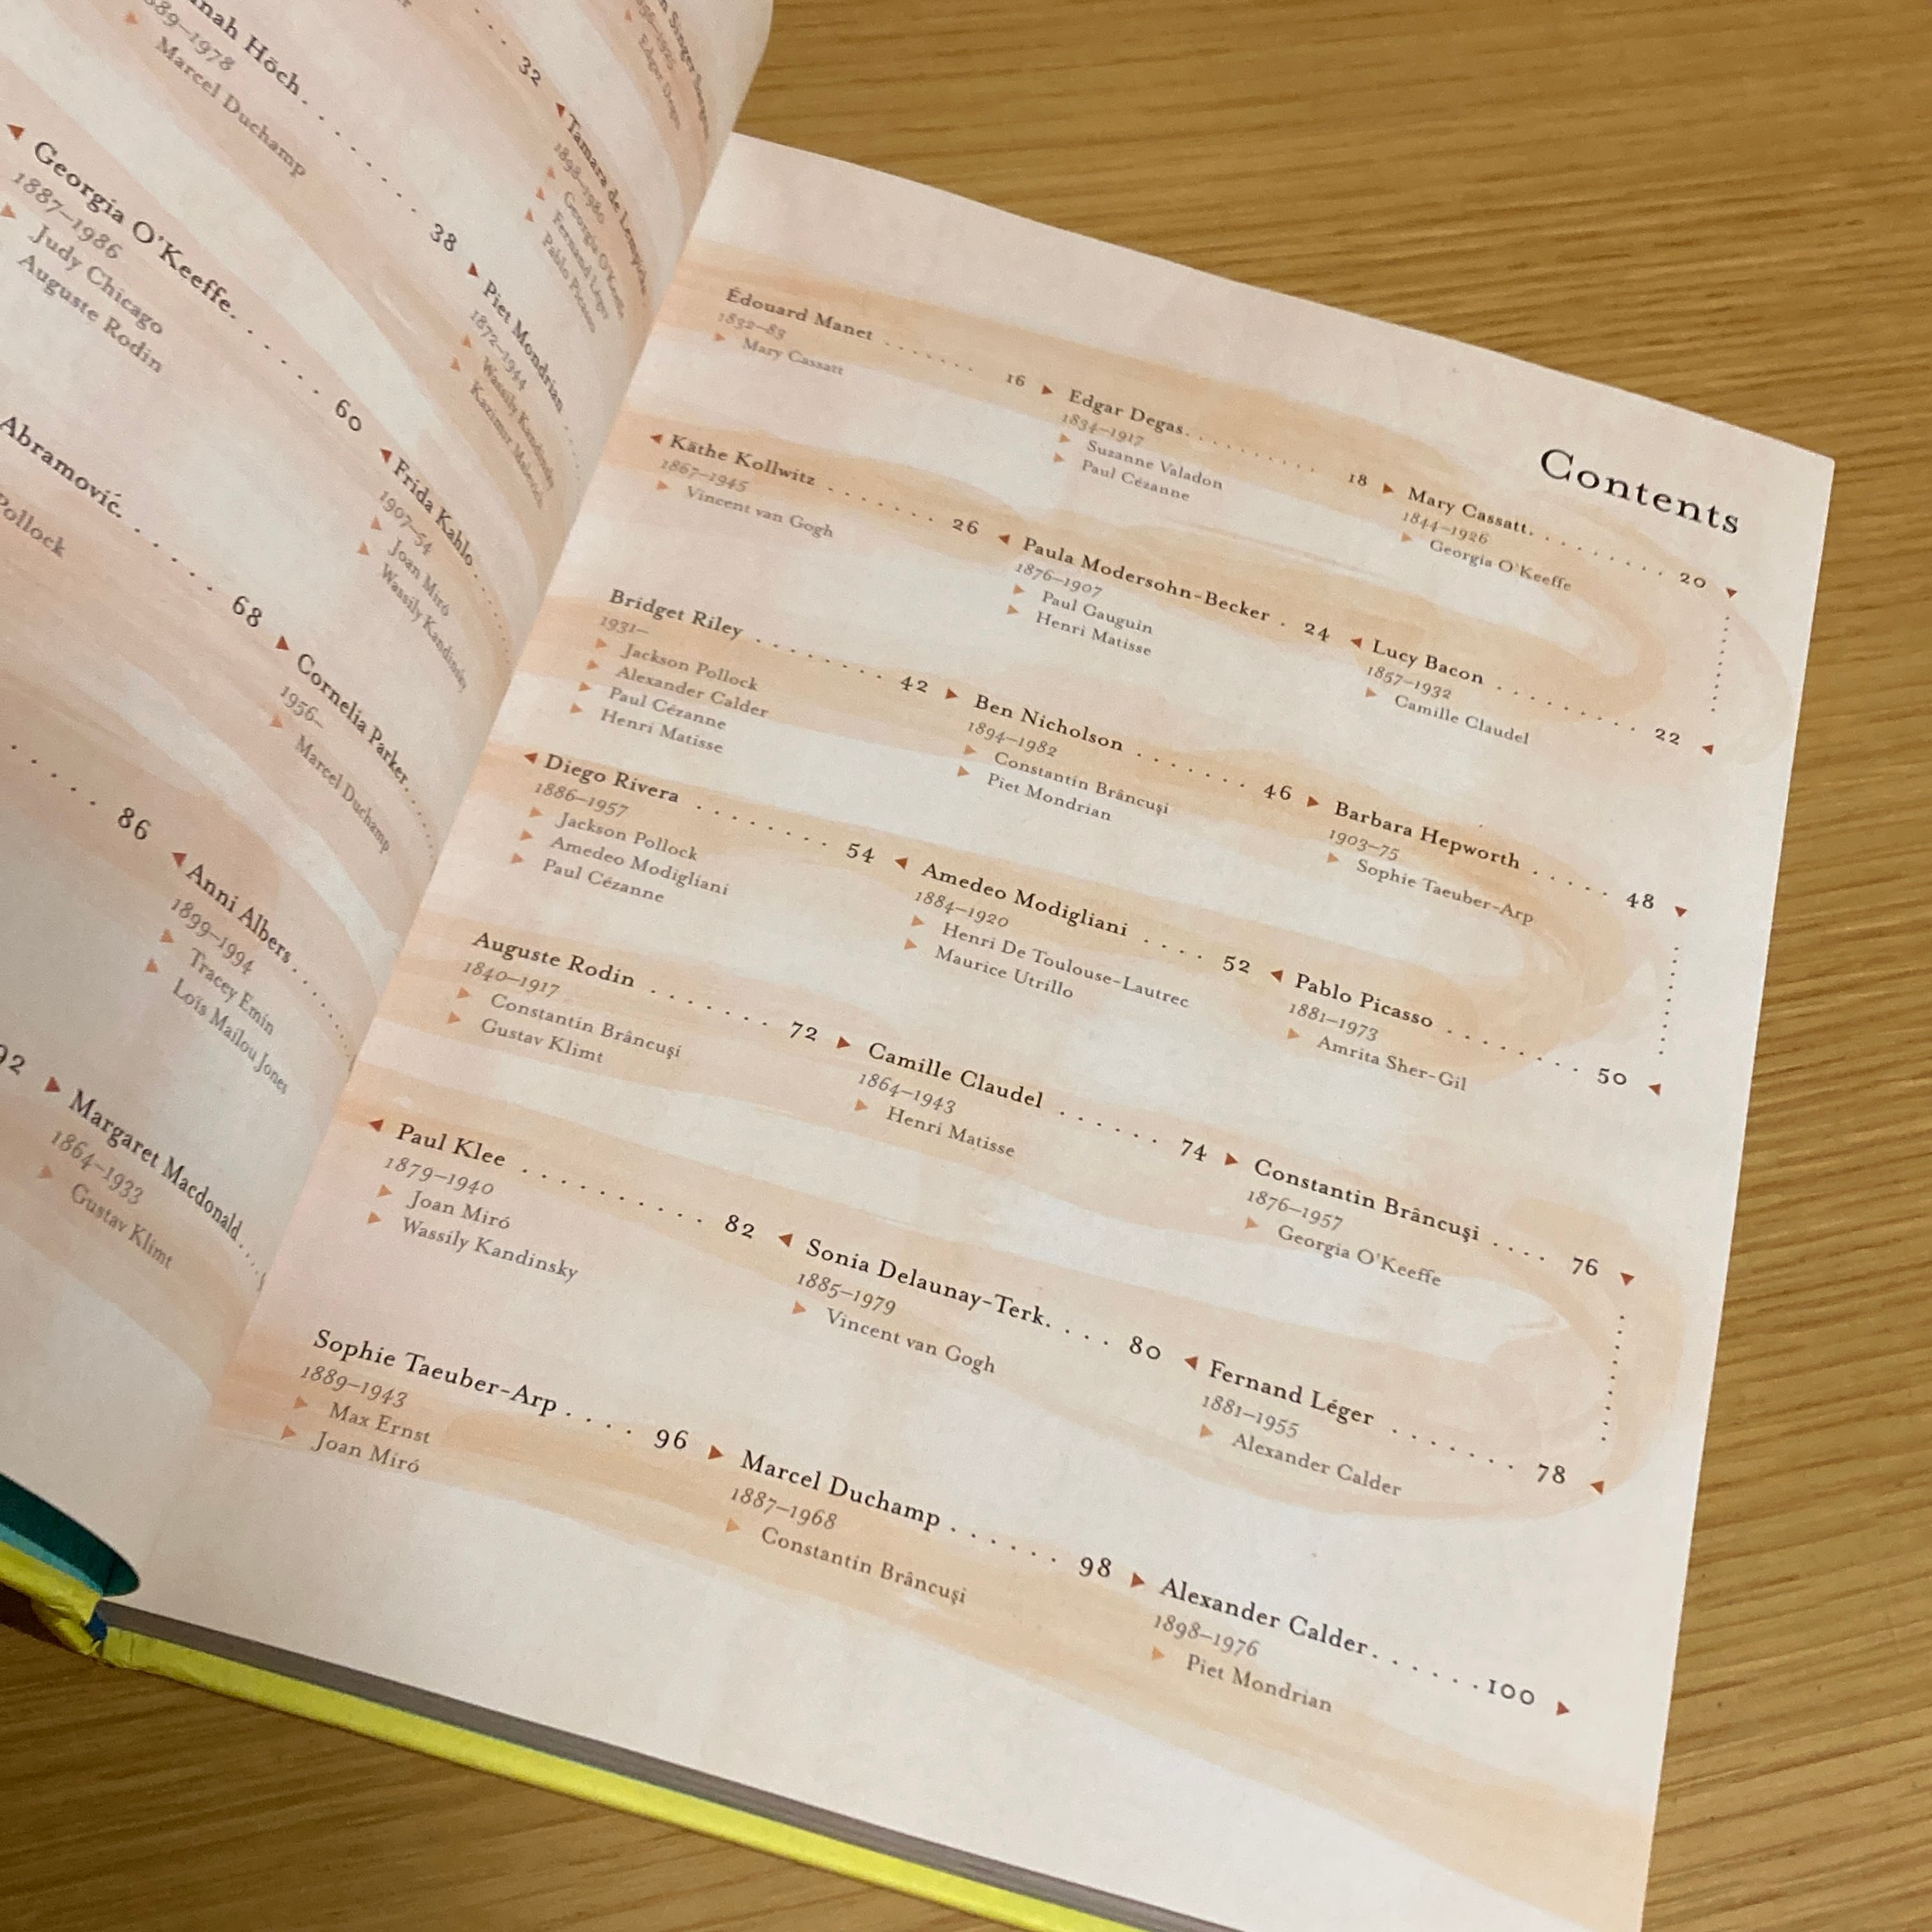 nah Höch. 38
89–1978
Marcel Duchamp
Georgia O'Keeffe. 60
1887–1986
Judy Chicago
Auguste Rodin
Abramović. 68
Pollock
86
92
32
Tamara de Lempicka
1898–1980
Georgia O'Keeffe
Fernand Léger
Pablo Picasso
Piet Mondrian
1872–1944
Wassily Kandinsky
Kazimir Malevich
Frida Kahlo
1907–54
Joan Miró
Wassily Kandinsky
Cornelia Parker
1956–
Marcel Duchamp
Anni Albers
1899–1994
Tracey Emin
Loïs Mailou Jones
Margaret Macdonald
1864–1933
Gustav Klimt
Contents
Édouard Manet 16
1832–83
Mary Cassatt
Edgar Degas. 18
1834–1917
Suzanne Valadon
Paul Cézanne
Mary Cassatt. 20
1844–1926
Georgia O'Keeffe
Käthe Kollwitz 26
1867–1945
Vincent van Gogh
Paula Modersohn-Becker . 24
1876–1907
Paul Gauguin
Henri Matisse
Lucy Bacon 22
1857–1932
Camille Claudel
Bridget Riley 42
1931–
Jackson Pollock
Alexander Calder
Paul Cézanne
Henri Matisse
Ben Nicholson 46
1894–1982
Constantin Brâncuşi
Piet Mondrian
Barbara Hepworth 48
1903–75
Sophie Taeuber-Arp
Diego Rivera 54
1886–1957
Jackson Pollock
Amedeo Modigliani
Paul Cézanne
Amedeo Modigliani 52
1884–1920
Henri De Toulouse-Lautrec
Maurice Utrillo
Pablo Picasso 50
1881–1973
Amrita Sher-Gil
Auguste Rodin 72
1840–1917
Constantin Brâncuşi
Gustav Klimt
Camille Claudel 74
1864–1943
Henri Matisse
Constantin Brâncuşi 76
1876–1957
Georgia O'Keeffe
Paul Klee 82
1879–1940
Joan Miró
Wassily Kandinsky
Sonia Delaunay-Terk. 80
1885–1979
Vincent van Gogh
Fernand Léger 78
1881–1955
Alexander Calder
Sophie Taeuber-Arp 96
1889–1943
Max Ernst
Joan Miró
Marcel Duchamp 98
1887–1968
Constantin Brâncuşi
Alexander Calder. 100
1898–1976
Piet Mondrian